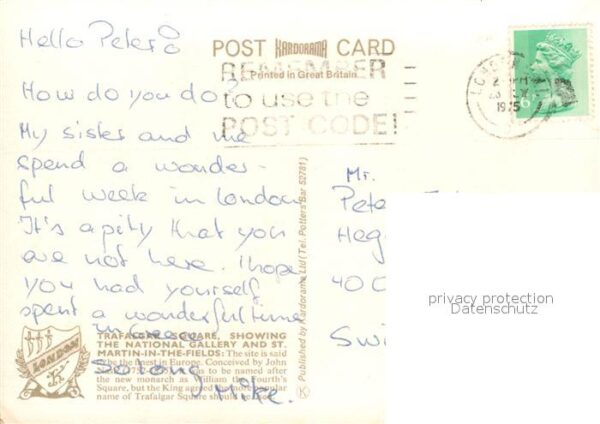 Hello Peter
How do you do?
My sister and me
spend a wonder-
ful week in London
It's a pity that you
are not here. I hope
you had yourself
spent a wonderful time
in Greece
So long
Mike.
POST KARDORAMA CARD
Printed in Great Britain
REMEMBER
to use the
POST CODE!
LONDON
1975
Mr.
Peter
Heg
40
Swi
privacy protection
Datenschutz
Published by Kardorama Ltd (Tel. Potters Bar 52781)
K
LONDON
TRAFALGAR SQUARE, SHOWING
THE NATIONAL GALLERY AND ST.
MARTIN-IN-THE-FIELDS: The site is said
to be the finest in Europe. Conceived by John
to be named after
the new monarch as William the Fourth's
Square, but the King agreed the more popular
name of Trafalgar Square should be